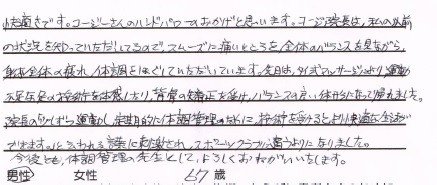 快適です。コージーさんのハンドパワーのおかげと思います。コージ院長は、私の以前
の状況を知っていただいてるので、スムーズに痛いところを全体のバランスを見ながら、
身体全体の疲れ、体調をほぐしていただいています。先日は、タイ式マッサージより運動
不足系の施術を体感したり、背骨の矯正を受け、バランスの良い体的になって帰れました。
院長の 運動し、定期的に体調管理のために、施術を受けると、より快適な生活が
できますよ といわれる言葉に刺激され、スポーツクラブに通うようになりました。
今後とも、体調管理の先生として、よろしくおねがいいたします。
男性 女性 67歳